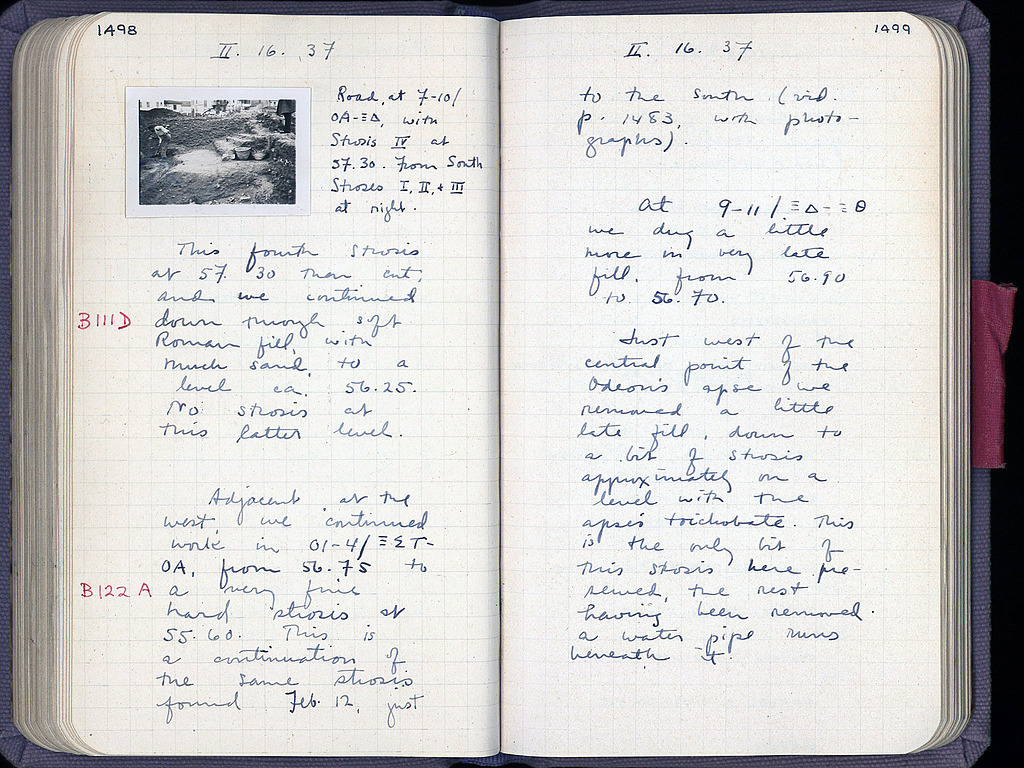 1498
II. 16. 37
Road, at 7-10/
OA-ΞΔ, with
Strosis IV at
57.30. From South
Stroses I, II, + III
at right.
This fourth strosis
at 57.30 then cut,
and we continued
B111D down through soft
Roman fill, with
much sand, to a
level ca. 56.25.
No strosis at
this latter level.
Adjacent at the
west, we continued
work in 01-4/ΞΣΤ-
OA, from 56.75 to
B122 A a very fine
hard strosis at
55.60. This is
a continuation of
the same strosis
found Feb. 12, just
1499
II. 16. 37
to the South (vid.
p. 1483, with photo-
graphs).
At 9-11/ΞΔ-ΞΘ
we dug a little
more in very late
fill, from 56.90
to 56.70.
Just west of the
central point of the
Odeon's apse we
removed a little
late fill, down to
a bit of strosis
approximately on a
level with the
apse's toichobate. This
is the only bit of
this strosis here pre-
served, the rest
having been removed.
a water pipe runs
beneath it.